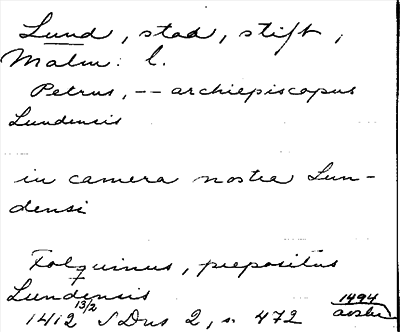 Lund, stad, stift,
Malm. l.
Petrus, -- archiepiscopus
Lundensis
in camera nostra Lun-
densi
Folquinus, prepositus
Lundensis
1412 13/2 SDns 2, s. 472
1494
avskr